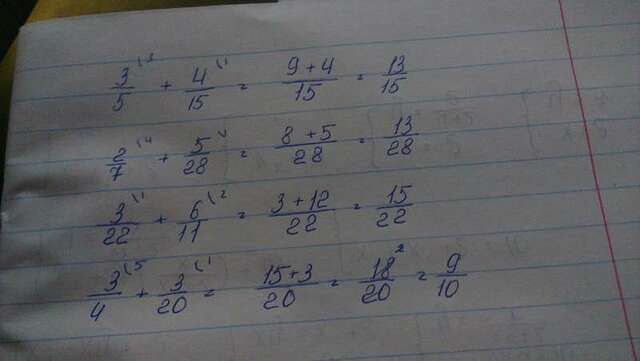 3/5 \3 + 4/15 \1 = 9+4/15 = 13/15
2/7 \4 + 5/28 \1 = 8+5/28 = 13/28
3/22 \1 + 6/11 \2 = 3+12/22 = 15/22
3/4 \5 + 3/20 \1 = 15+3/20 = 18/20 2 = 9/10